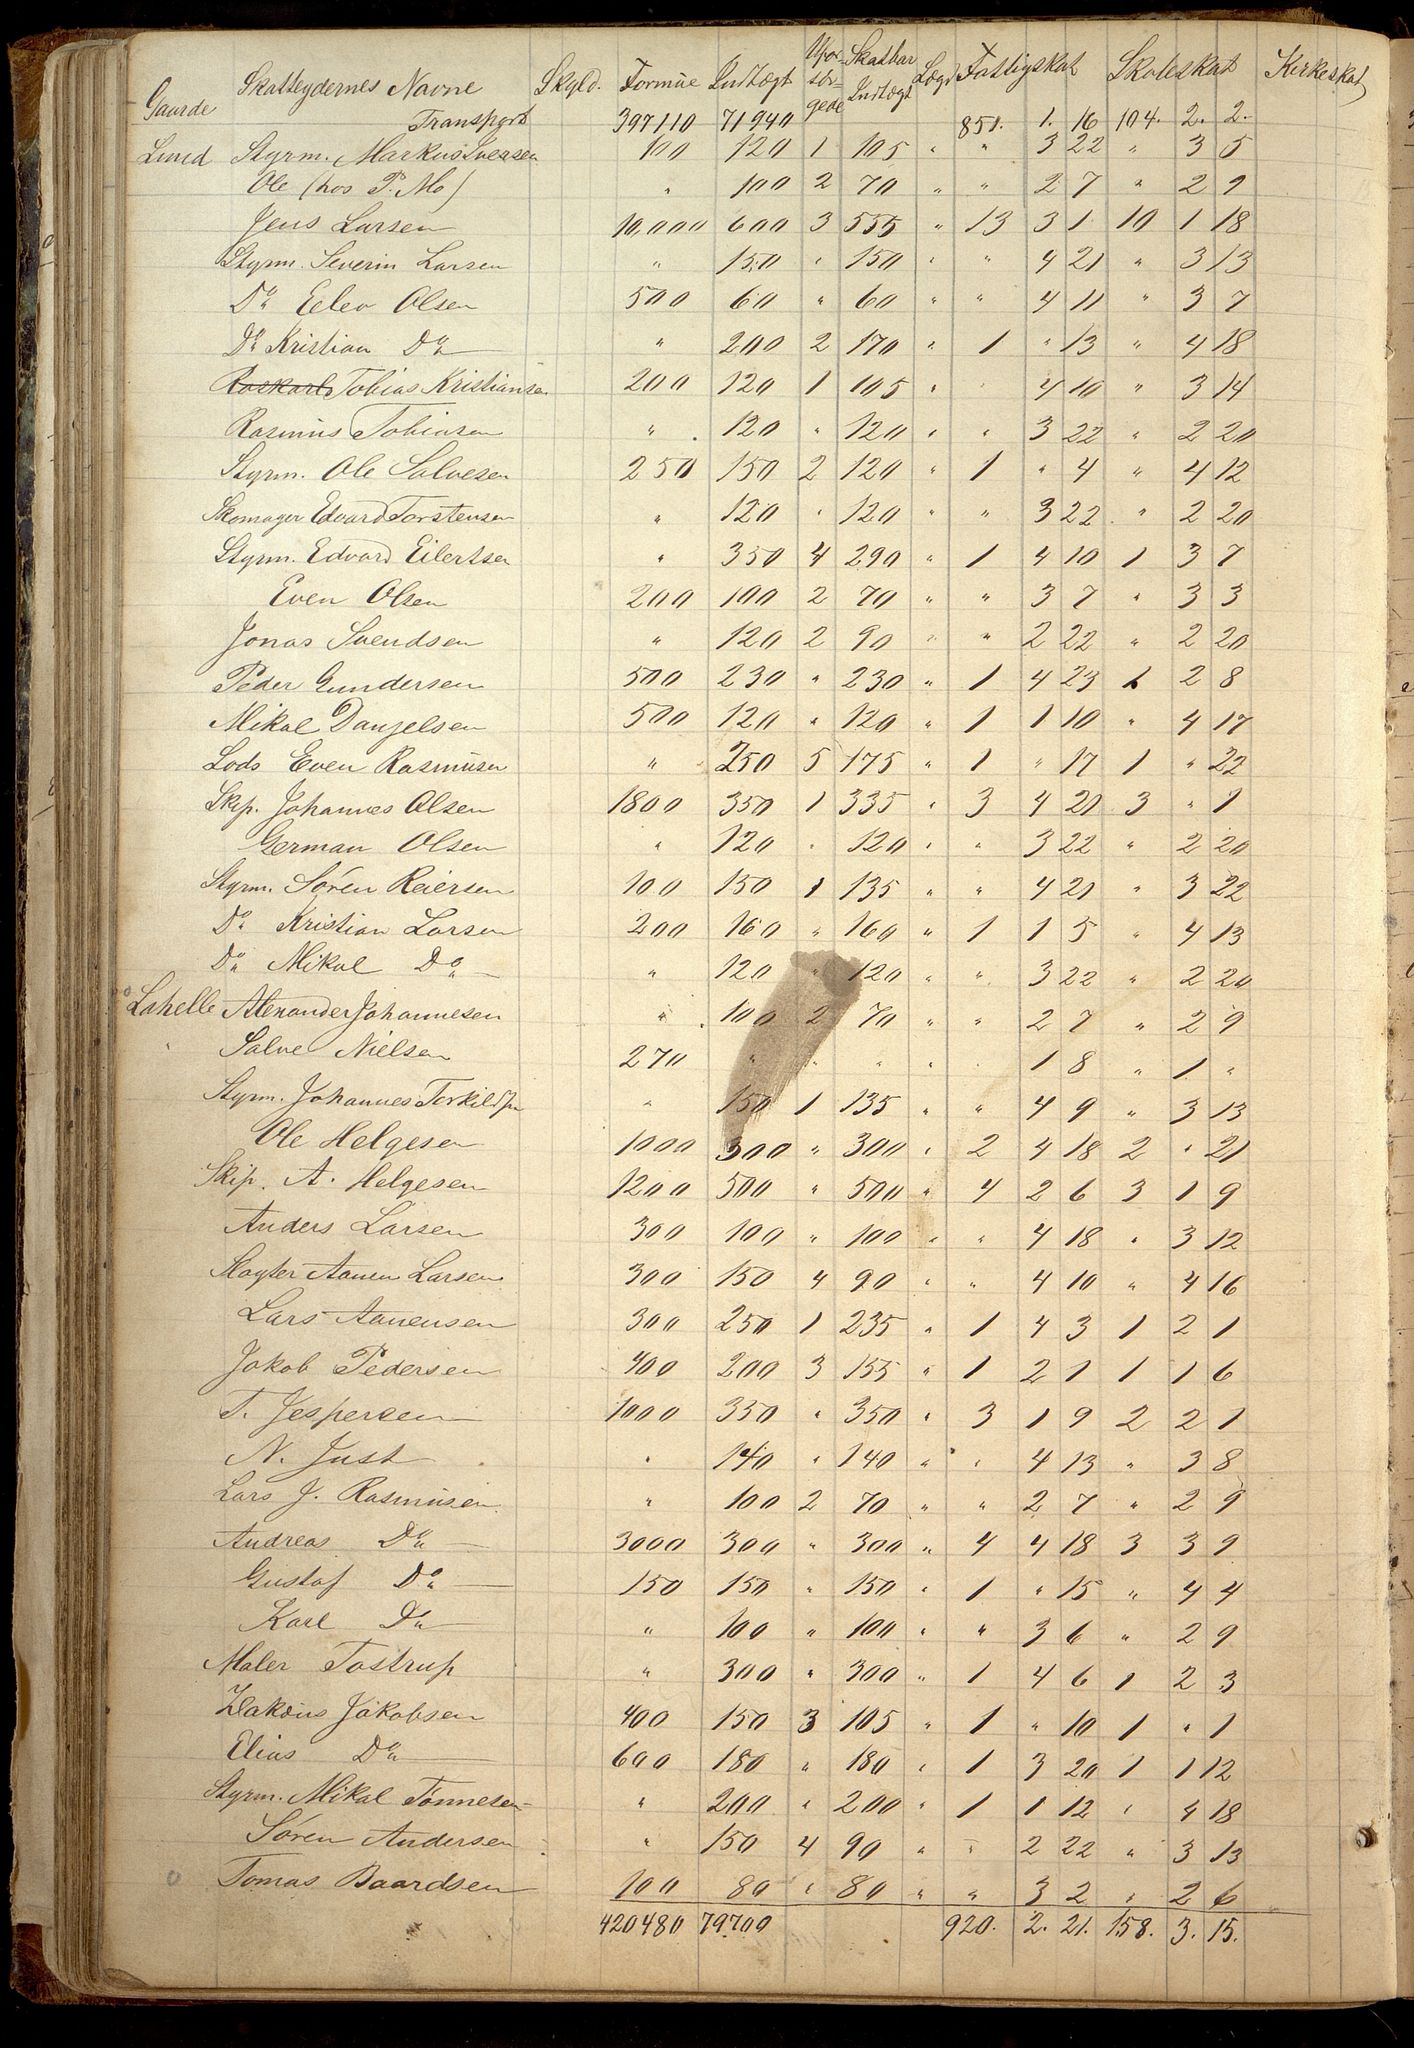 Gaarde Skatteydernes Navne Skyld. Formue Indtægt Ufor-sør-gede Skatbar Indtægt Lægd Fattigskat Skoleskat Kirkeskat
Transport 397110 71940 851. 1. 16 104. 2. 2.
Lund Styrm. Markus Iversen 100 120 1 105 " " 3 22 " 3 5
Ole (hos P. Mo) " 100 2 70 " " 2 7 " 2 9
Jens Larsen 10,000 600 3 555 " 13 3 1 10 1 18
Styrm. Severin Larsen " 150 " 150 " " 4 21 " 3 13
Do Eelev Olsen 500 60 " 60 " " 4 11 " 3 7
Do Kristian Do " 200 2 170 " 1 " 13 " 4 18
Tobias Kristiansen 200 120 1 105 " " 4 10 " 3 14
Rasmus Tobiasen " 120 " 120 " " 3 22 " 2 20
Styrm. Ole Salvesen 250 150 2 120 " 1 " 4 " 4 12
Skomager Edvard Torstensen " 120 " 120 " " 3 22 " 2 20
Styrm. Edvard Eilertsen " 350 4 290 " 1 4 10 1 3 7
Even Olsen 200 100 2 70 " " 3 7 " 3 3
Jonas Svendsen " 120 2 90 " " 2 22 " 2 20
Peder Gundersen 500 230 " 230 " 1 4 23 1 2 8
Mikal Danjelsen 500 120 " 120 " 1 1 10 " 4 17
Lods Even Rasmusen " 250 5 175 " 1 " 17 1 " 22
Skip. Johannes Olsen 1800 350 1 335 " 3 4 20 3 " 1
German Olsen " 120 " 120 " " 3 22 " 2 20
Styrm. Sören Reiersen 100 150 1 135 " " 4 21 " 3 22
Do Kristian Larsen 200 160 " 160 " 1 1 5 " 4 13
Do Mikal Do " 120 " 120 " " 3 22 " 2 20
Lahelle Alexander Johannesen " 100 2 70 " " 2 7 " 2 9
Salve Nielsen 270 " " " " " 1 8 " 1 "
Styrm. Johannes Torkildsen " 150 1 135 " " 4 9 " 3 13
Ole Helgesen 1000 300 " 300 " 2 4 18 2 " 21
Skip. A. Helgesen 1200 500 " 500 " 4 2 6 3 1 9
Anders Larsen 300 100 " 100 " " 4 18 " 3 12
Slagter Aanen Larsen 300 150 4 90 " " 4 10 " 4 16
Lars Aanensen 300 250 1 235 " 1 4 3 1 2 1
Jakob Pedersen 400 200 3 155 " 1 2 1 1 1 6
T. Jespersen 1000 350 " 350 " 3 1 9 2 2 1
N. Just " 140 " 140 " " 4 13 " 3 8
Lars J. Rasmusen " 100 2 70 " " 2 7 " 2 9
Andreas Do 3000 300 " 300 " 4 4 18 3 3 9
Gustaf Do 150 150 " 150 " 1 " 15 " 4 4
Karl Do " 100 " 100 " " 3 6 " 2 9
Maler Tostrup " 300 " 300 " 1 4 6 1 2 3
Jakobsen 400 150 3 105 " 1 " 10 1 " 1
Elias Do 600 180 " 180 " 1 3 20 1 1 12
Styrm. Mikal Tönnesen " 200 " 200 " 1 1 12 " 4 18
Sören Andersen " 150 4 90 " " 2 22 " 3 13
Tomas Baardsen 100 80 " 80 " " 3 2 " 2 6
420480 79700 920. 2. 21. 158. 3. 15.